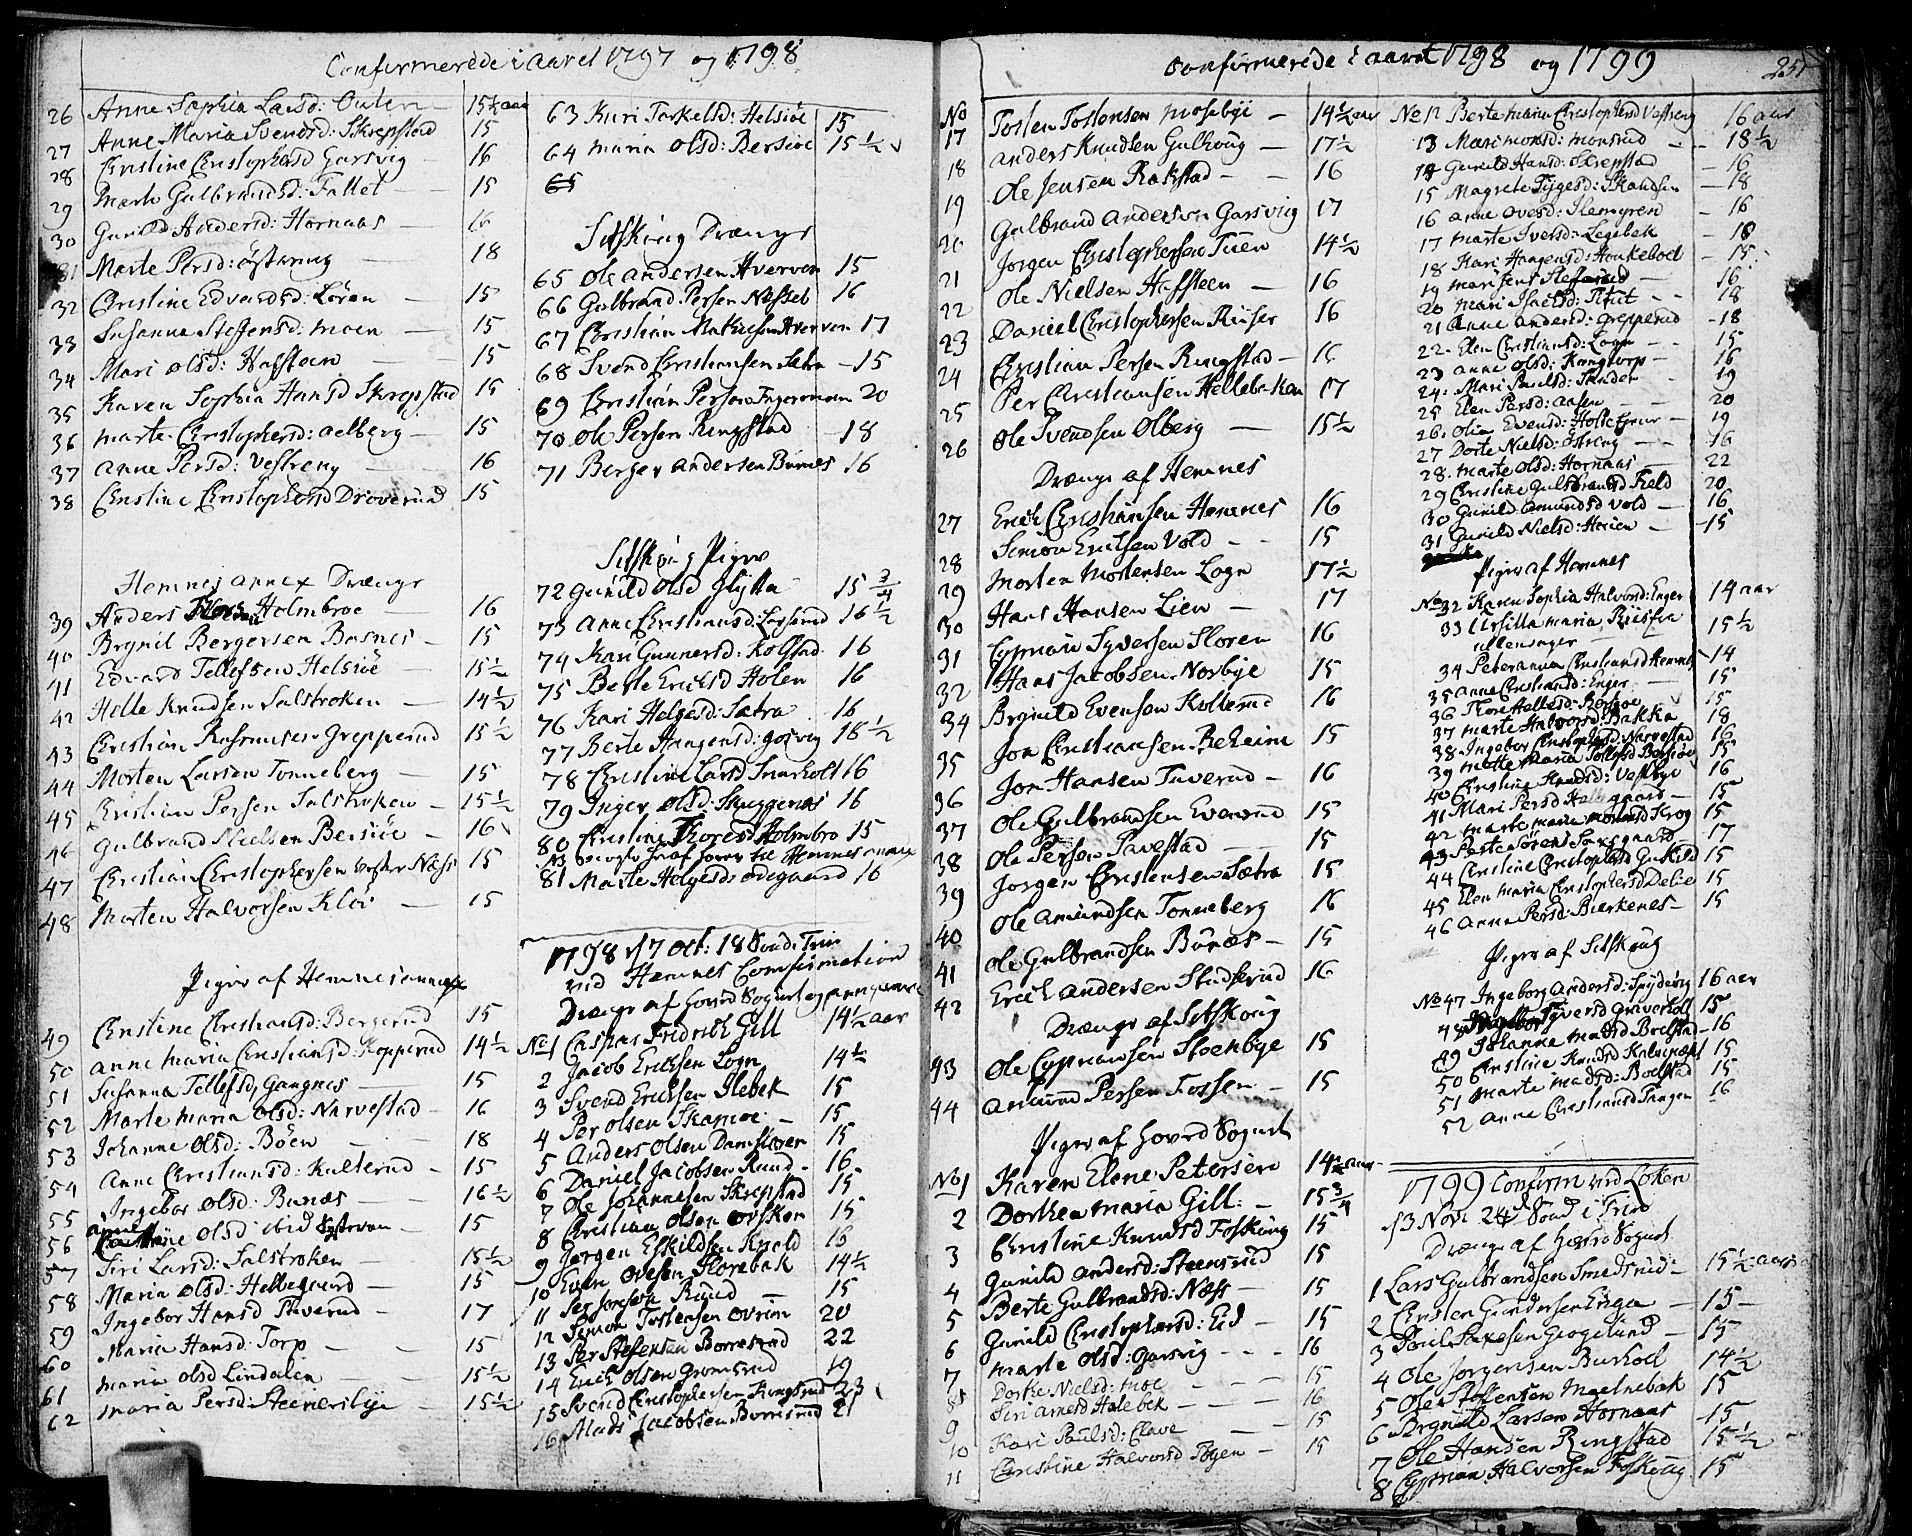 Confirmerede i aaret 1797 og 1798
26 Anne Sophia Larsd: Outen 15½ aar
27 Anne Maria Svendsd: Skrepstad 15
28 Christine Christophersd Garsvig 16
29 Marte Gulbrandsd: Fallet 15
30 Gunild Andersd: Hornaas 16
31 Marte Persd: Østereng 18
32 Christine Edvardsd: Løren 15
33 Susanna Steffensd: Moen 15
34 Mari Olsd: Hafsteen 15
35 Karen Sophia Hansd Skrepstad 15
36 Marte Christophersd: Aelberg 15
37 Anne Persd: Vestreng 16
38 Christine Christophersd Droverud 15
Hemnes annex Drænge
39 Anders Thores: Holmbroe 16
40 Brynil Bergersen Bosnes 15
41 Edvard Tellefsen Helsiøe 15½
42 Helle Knudsen Salstroken 14½
43 Christian Rasmusen Grepperud 15½
44 Morten Larsen Tonneberg 15
45 Christian Persen Salstroken 15½
46 Gulbrand Nielsen Bersiøe 16
47 Christian Christophersen Vester Næss 15
48 Morten Halvorsen Kloi 15
Piger af Hemnes annex
49 Christine Christiansd: Bergerud 15
50 Anne Maria Christiansd: Kopperud 14½
51 Susanna Tellefsd: Gangnes 15
52 Marte Maria Olsd: Narvestad 16
53 Johanne Olsd: Böen 18
54 Anne Christiansd: Kulterud 15
55 Ingebor Olsd: Bunæs 16½
56 Anne Olsd ibid 15
57 Siri Larsd: Salstroken 15½
58 Maria Olsd: Hellegaard 15
59 Ingebor Hansd Tuverud 17
60 Maria Hansd: Torp 15
61 Maria Olsd Lindalen 15½
62 Maria Persd: Steenersbye 15½
63 Kari Torkelsd: Helsiøe 15
64 Maria Olsd: Bersiøe 15½
65
Sitskoug Drænge
65 Ole Andersen Hverven 15
66 Gulbrand Persen Nossel 16
67 Christian Mathiesen Hverven 17
68 Svend Christiansen Sætra 15
69 Christian Persen Ingermoen 20
70 Ole Persen Kingstad 18
71 Berger Andersen Bunes 16
Sitskoug Piger
72 Gunild Olsd Flytta 15¾
73 Anne Christiansd: Lorserud 16½
74 Kari Gunnersd: Kolstad 16
75 Berte Ericksd Holen 16
76 Kari Helgesd: Sætra 16
77 Berte Haagensd: 16½
78 Christine Larsd Snarholt 16
79 Inger Olsd: Skuggenæs 16
80 Christine Thoresd Holmbro 15
81 Marte Helgesd: Ødegaard 16
1798 d 7 Oct: 18 Sond: Trin
ved Hemnes Confirmation
Drænge af Hoved Sognet og annexerne
No 1 Caspar Fridrich Gill 14½ aar
2 Jacob Ericksen Logn 14½
3 Svend Ericksen Ilebek 15
4 Per Olsen Skamoe 15
5 Anders Olsen Dammoen 15
6 Daniel Jacobsen Ruud 16
7 Ole Johannesen Skrepstad 15
8 Christian Olsen Ousken 15
9 Jorgen Eskildsen Knold 16
10 Even Ovesen Florebek 14½
11 Per Jonsen Ruud 15
12 Simon Tostensen Ovrim 20
13 Per Stefensen Borresrud 22
14 Erich Olsen Gromsrud 19
15 Svend Christophersen Kongsrud 23
16 Mads Jacobsen Bornsrud 21
Confirmerede i aaret 1798 og 1799
251
No
17 Tosten Tostensen Mosebye 14½ aar
18 Anders Knudsen Gulhoug 17½
19 Ole Jensen Rakstad 16
20 Gulbrand Andersen Garsvig 17
21 Jorgen Christophersen Tuen 14½
22 Ole Nielsen Hafsteen 16
23 Daniel Christophersen Riiser 16
24 Christian Persen Ringstad 16
25 Per Christiansen Hellebekken 17
26 Ole Svendsen Olberg 15½
Drænge af Hemnes
27 Erich Christiansen Hemnes 16
28 Simon Ericksen Vold 15
29 Morten Mortensen Logn 17½
30 Hans Hansen Lien 17
31 Cyprian Syversen Floren 16
32 Hans Jacobsen Norbye 15
34 Brynild Evensen Kollerud 16
35 Jon Christiansen Reheim 15
36 Jon Hansen Tuverud 16
37 Ole Gulbrandsen Evenrud 15
38 Ole Persen Tavestad 15
39 Jorgen Christensen Sætra 15
40 Ole Amundsen Tonneberg 16
41 Ole Gulbrandsen Bunæs 15
42 Erich Andersen Studserud 16
Drænge af Sitskoug
43 Ole Cypriansen Steenbye 15
44 Amund Persen Fossen 15
Piger af Hoved Sognet
No 1 Karen Elene Petersen 14½ aar
2 Dorthea Maria Gill 15¾
3 Christine Knudsd Foskoug 15
4 Gunild Andersd: Steensrud 15
5 Berte Gulbrandsd: Næss 15
6 Gunild Christophersd: Eid 15
7 Marte Olsd: Garsvig 16
8 Dorthe Nielsd: Moe 15
9 Siri Arnesd Holebek 16
10 Kari Paulsd: Clave 15
11 Christine Halvorsd Togen 15
No 12 Berte Maria Christophersd Vestberg 16 aar
13 Mari Monsd: Monsrud 18½
14 Gunild Hansd: Skrepstad 16
15 Magrete Tygesd: Skandsen 18
16 Anne Ovesd: Hemgren 16
17 Marte Iversd: Legebek 18
18 Kari Haagensd: Honkebøel 15
19 16
20 Mari Isachsd: 18
21 Anne Andersd: Grepperud 18
22 Elen Christiansd: Logn 15
23 Anne Olsd: Kongtorp 16
24 Mari Paulsd: Tander 19
25 Elen Persd: Aasen 20
26 Olia Evensd: Holtetjener 19
27 Dorte Nielsd: Østreng 16
28 Marte Olsd: Hornaas 22
29 Christine Gulbrandsd Field 20
30 Gunild Amundsd Vold 16
31 Gunild Nielsd: Horien 15
Piger af Hemnes
No 32 Karen Sophia Halvorsd: Enger 14 aar
33 Ursilla Maria Riis fra
Ullensager 15½
34 Peteranna Christiansd Hemnes 14
35 Anne Christiansd: Enger 15
36 Thore Hellesd: Bersioe 15
37 Marte Halvorsd: Bakka 18
38 Ingebor Christophersd: Narvestad 16
39 Mette Maria Tollefsd Bersiøe 15
40 Christine Hansd: Vestbye 16
41 Mari Persd Hellegaard 15
42 Marte Marie Monsd Krog 15
43 Berte Sørensd Saxegaard 17
44 Christine Christophersd Gukild 15
45 Elen Maria Christophersd Delie 15
46 Anne Persd: Bierkenes 15
Piger af Sitskoug
No 47 Ingeborg Andersd: Spydevig 16 aar
48 Syversd Graverholt 15
49 Johanne Madsd Boelstad 16
50 Christine Knudsd Kalvenæs 15
51 Marte Madsd: Boelstad 15
52 Anne Christiansd Tangen 16
1799 Confirm ved Løken
d 3 Nov: 24d Sond i Trin
Drænge af Hoved Sognet
1 Lars Gulbrandsen Smedsrud 15½ aar
2 Christen Gundersen Enga 15
3 Poul Saxesen Grogelund 15
4 Ole Jørgensen Burhoel 14½
5 Ole Tostensen Moelnebek 15
6 Brynild Larsen Hornaas 15
7 Ole Hansen Ringstad 15½
8 Cyprian Halvorsen Foskoug 15